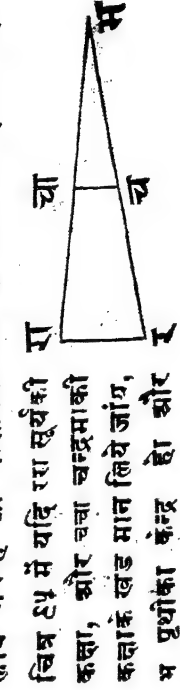 चित्र ६५ में यदि ररा सूर्यकी
कक्षा, और चचा चन्द्रमाकी
कक्षाके खंड मान लिये जांय,
भ पृथ्वीका केन्द्र हो और
रा
चा
भ
र
च